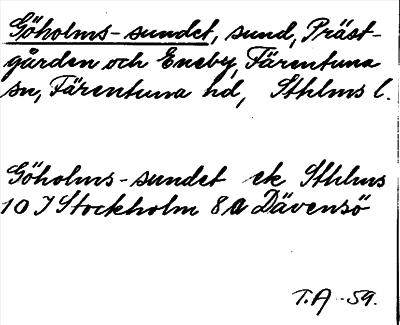 Göholms-sundet, sund, Präst-
gården och Eneby, Färentuna
sn, Färentuna hd, Sthlms l.
Göholms-sundet ek Sthlms
10 I Stockholm 8 a Dävensö
T.A -59.